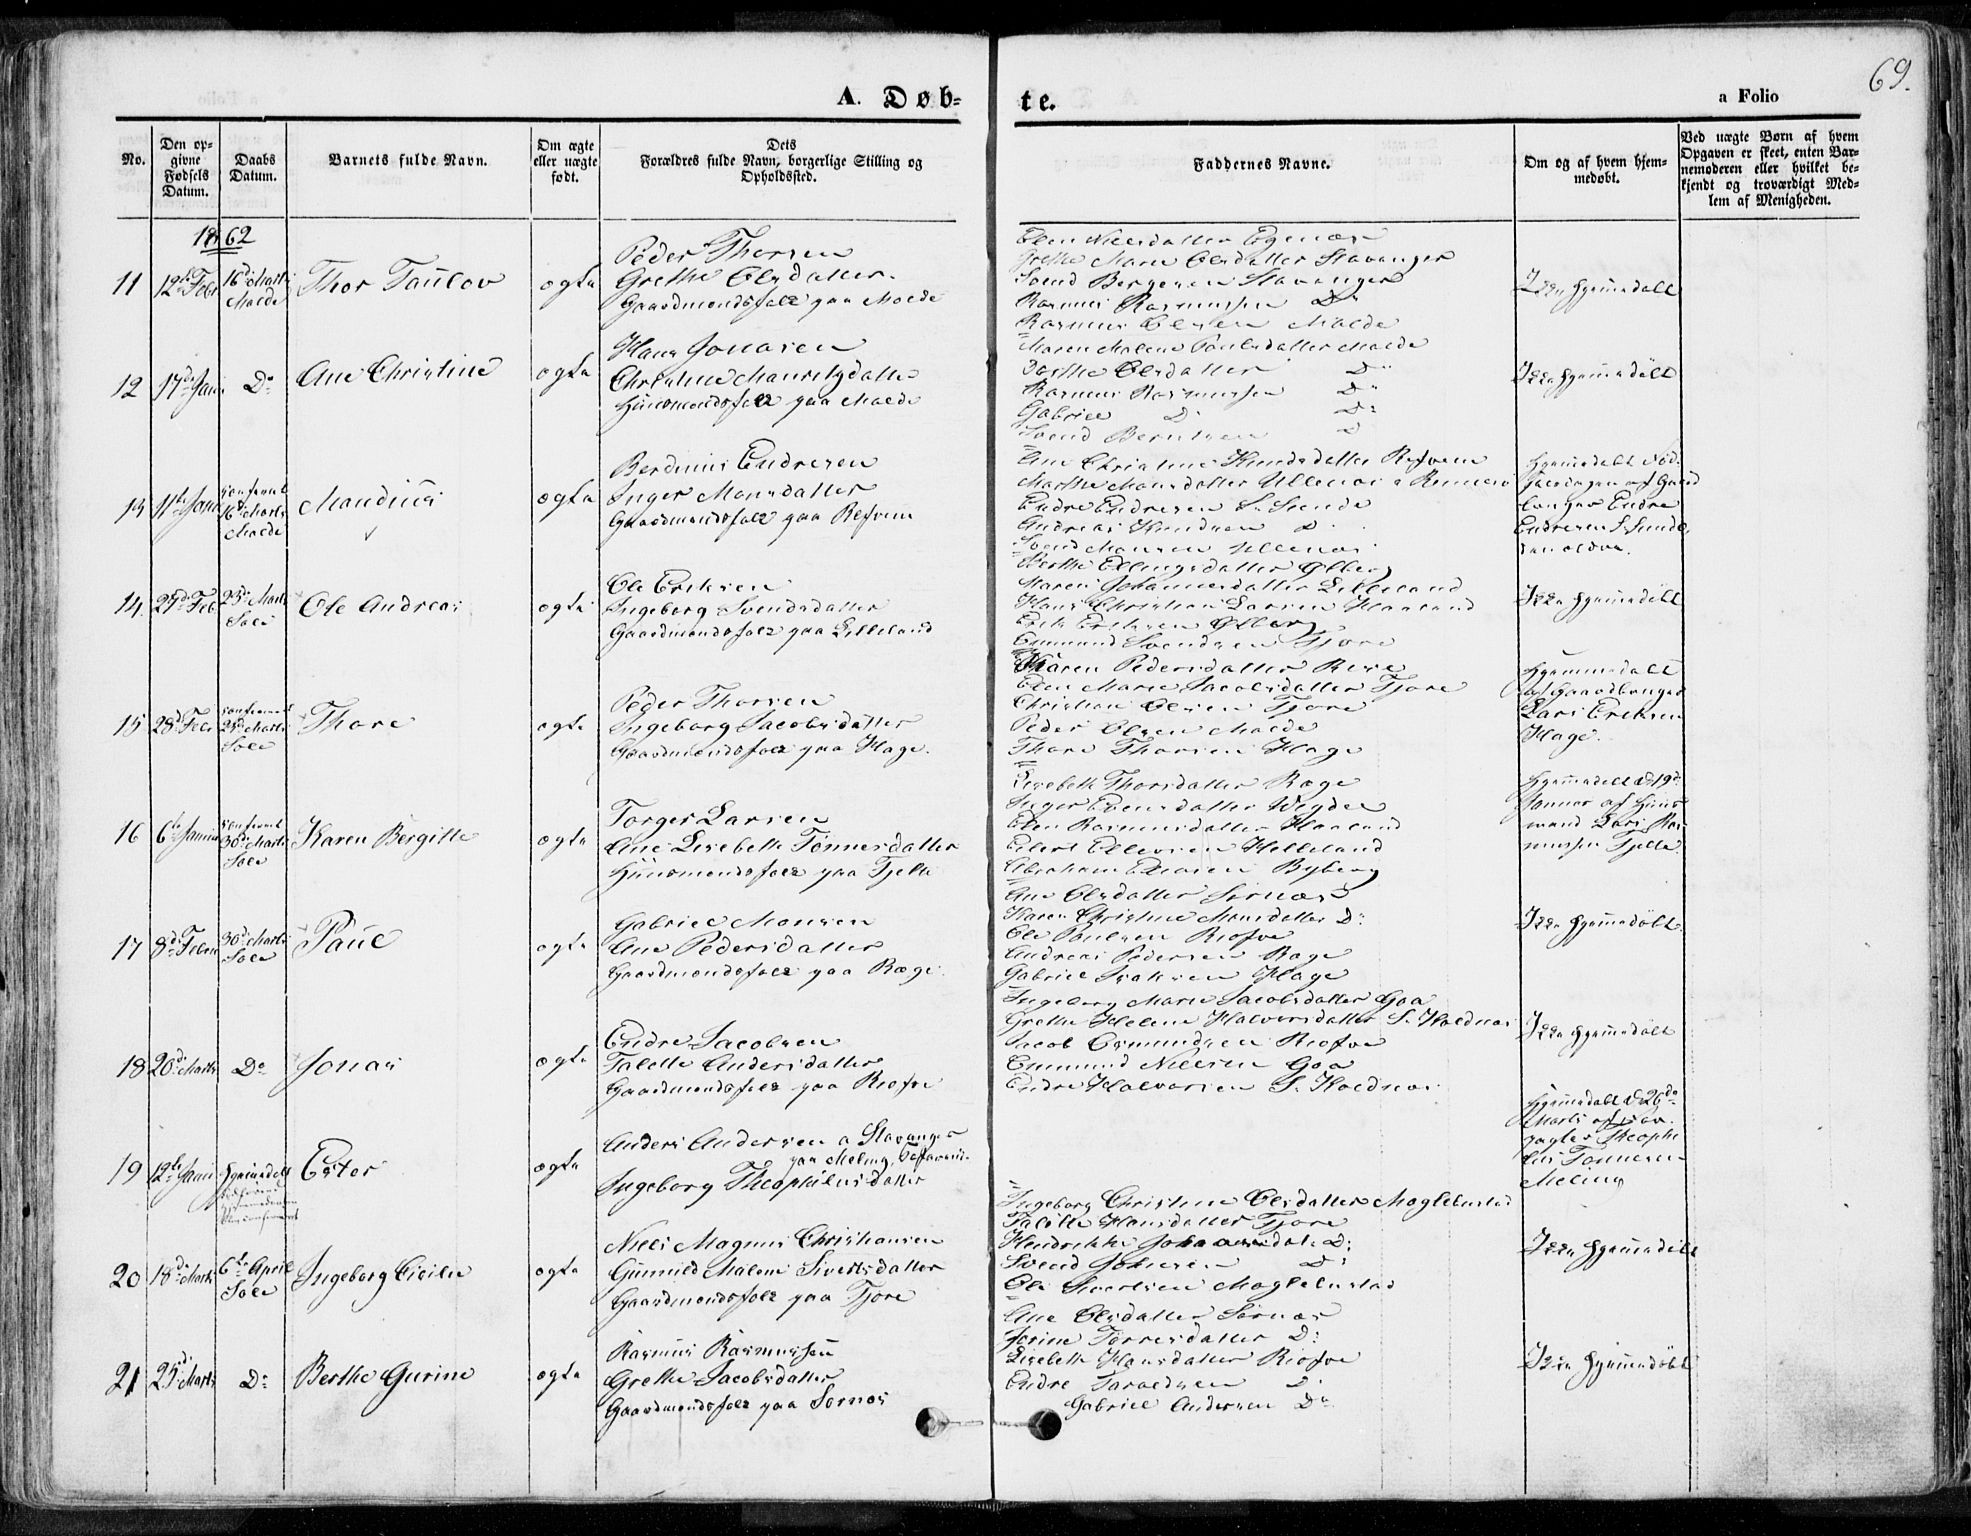 69.
A. Døb-
te.
a Folio
No.
Den op-
givne
Fødsels
Datum.
Daabs
Datum.
Barnets fulde Navn.
Om ægte
eller uægte
født.
Dets
Forældres fulde Navn, borgerlige Stilling og
Opholdssted.
Faddernes Navne.
Om og af hvem hjem-
medøbt.
Ved uægte Børn af hvem
Opgaven er skeet, enten Bar-
nemoderen eller hvilket be-
kjendt og troværdigt Med-
lem af Menigheden.
1862
11
12te Febr
16de Marts
Malde
Thor Taulov
ægte
Peder Thorsen
Grethe Olsdatter
Gaardmandsfolk paa Malde
Elen Nielsdatter
Grethe Marie Olsdatter Stavanger
Svend Bergesen Stavanger
Rasmus Rasmussen Do
Rasmus Olsen Malde
Ikke hjemmedøbt
12
17de Janu
Do
Ane Christine
ægte
Hans Jonasen
Christine Mauritzdatter
Huusmandsfolk paa Malde
Maren Malene Paulsdatter Malde
Berthe Olsdatter Do
Rasmus Rasmussen Do
Gabriel D. Do
Svend Berntsen D
Ikke hjemmedøbt
13
11te Janu
confirmeret
16de Marts
Malde
Mandius
ægte
Berdinius Endresen
Inger Monsdatter
Gaardmandsfolk paa Refsnes
Ane Christine Knudsdatter Refsnes
Marthe Monsdatter Ullenæs
Endre Endresen S. Sunde
Andreas Knudsen D.
Svend Monsen Ullenæs
hjemmedøbt
af Gaard
bruger Endre
Endresen S. Sunde
14.
27de Feb
23de Marts
Sole
Ole Andreas
ægte
Ole Eriksen
Ingeborg Svendsdatter
Gaardmandsfolk paa Lilleland
Berthe Ellingsdatter Ølberg
Maren Johannesdatter Lilleland
Hans Christian Larsen Haaland
Erik Eriksen Ølberg
Enmund Svendsen Tjore
Ikke hjemmedøbt
15
28de Febr
confirmeret
23de Marts
Sole
Thore
ægte
Peder Thorsen
Ingeborg Jacobsdatter
Gaardmandsfolk paa Hage.
Karen Pedersdatter Rege
Elen Marie Jacobsdatter Tjore
Christian Olsen Tjore
Peder Olsen Malde
Thore Thorsen Hage
hjemmedøbt
af Gaardbruger
Lars Eriksen
Hage.
16
6te Janua
confirmeret
30de Marts
Sole
Karen Bergitte
ægte
Torger Larsen
Ane Lisebeth Tønnesdatter
Huusmandsfolk paa Tjelta
Lisebeth Thorsdatter Rege
Inger Edensdatter
Elen Rasmusdatter Haaland
Eilert Ellevsen Helleland
Abraham Byberg
hjemmedøbt d. 19de
Januar af Huus
mand Lars Ras
mussen Tjelta.
17
8de Febru
30de Marts
Sole
Paul
ægte
Gabriel Monsen
Ane Pedersdatter
Gaardmandsfolk paa Ræge.
Ane Olsdatter Sørnæs
Karen Christine Monsdatter D:
Ole Paulsen Risfve
Andreas Pedersen Rage
Gabriel Isaksen Hage
Ikke hjemmedøbt.
18
20de Marts
Do
Jonas
ægte
Endre Jacobsen
Talette Andersdatter
Gaardmandsfolk paa Riofve
Ingeborg Marie Jacobsdatter Goa
Grethe Helene Halvorsdatter S. Haldnæs
Jacob Osmundsen Riofve
Enmund Nielsen Goa
Endre Halvorsen S. Haldnæs
Ikke hjemmedøbt
19
12te Janu
hjemmedøbt
Ester
ægte
Anders Andersen a Stavanger
paa Meling,
Ingeborg Theophilusdatter
hjemmedøbt d. 26de
Marts af
Theophi
lus Tønnesen
Meling
20
18de Marts
6te April
Sole
Ingeborg Cicilie
ægte
Niels Magnus Christiansen
Gunnild Malene Sivertsdatter
Gaardmandsfolk paa Tjore
Ingeborg Christine Olsdatter Maglebustad
Talette Hansdatter Tjore
Hendrikke D:
Svend Johnsen D:
Ole Sivertsen Maglebustad
Ikke hjemmedøbt
21
25de Marts
Do
Berthe Gurine
ægte
Rasmus Rasmussen
Grethe Jacobsdatter
Gaardmandsfolk paa Sørnæs
Ane Olsdatter Sørnæs
Serine Torresdatter D:
Lisebeth Hansdatter Riofve
Endre D.
Gabriel Andersen Do
Ikke hjemmedøbt